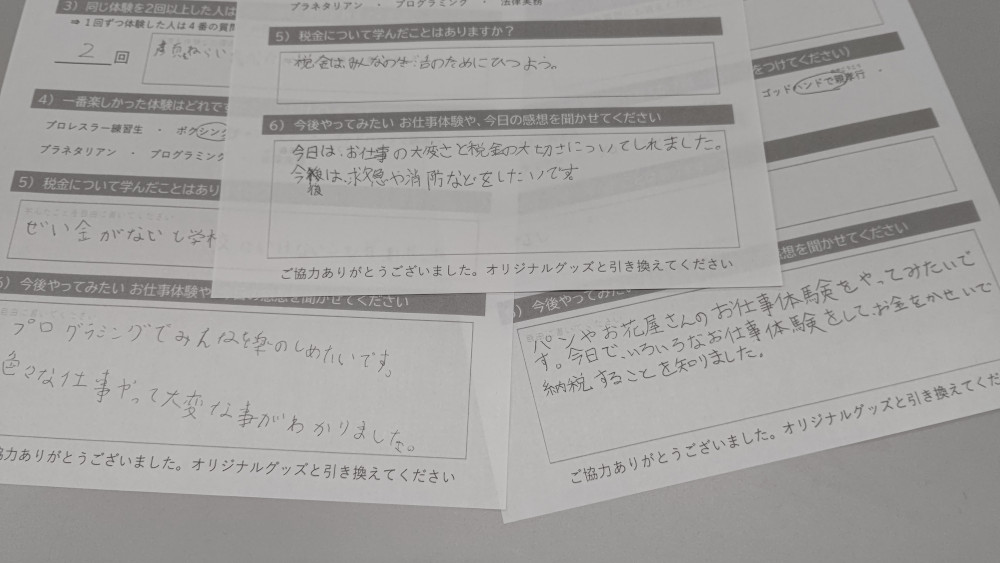 3）同じ体験を2回以上した人は
⇒ 1回ずつ体験した人は4番の質問
2 回
4）一番楽しかった体験はどれです
プロレスラー練習生 ・ ボクシング
プラネタリアン ・ プログラミング
5）税金について学んだことはあり
ぜい金がないと学校
今後やってみたい お仕事体験や
感想を聞かせてください
プログラミングでみんなを楽のしめたいです。
色々な仕事やって大変な事がわかりました。
協力ありがとうございました。オリジナルグッズと引き換えてください
プラネタリアン ・ プログラミング ・ 法律実務
5）税金について学んだことはありますか？
税金はみんなの生活のためにひつよう。
6）今後やってみたい お仕事体験や、今日の感想を聞かせてください
今日は、お仕事の大変さと税金の大切さについてしれました。
今後は、求急や消防などをしたいです
後
ご協力ありがとうございました。オリジナルグッズと引き換えてください
をつけてください）
ゴッドハンドで親孝行 ・
今後やってみた
想を聞かせてください
パンやお花屋さんのお仕事体験をやってみたいで
す。今日で、いろいろなお仕事体験をして、お金をかせいで
納税することを知りました。
ご協力ありがとうございました。オリジナルグッズと引き換えてくださ